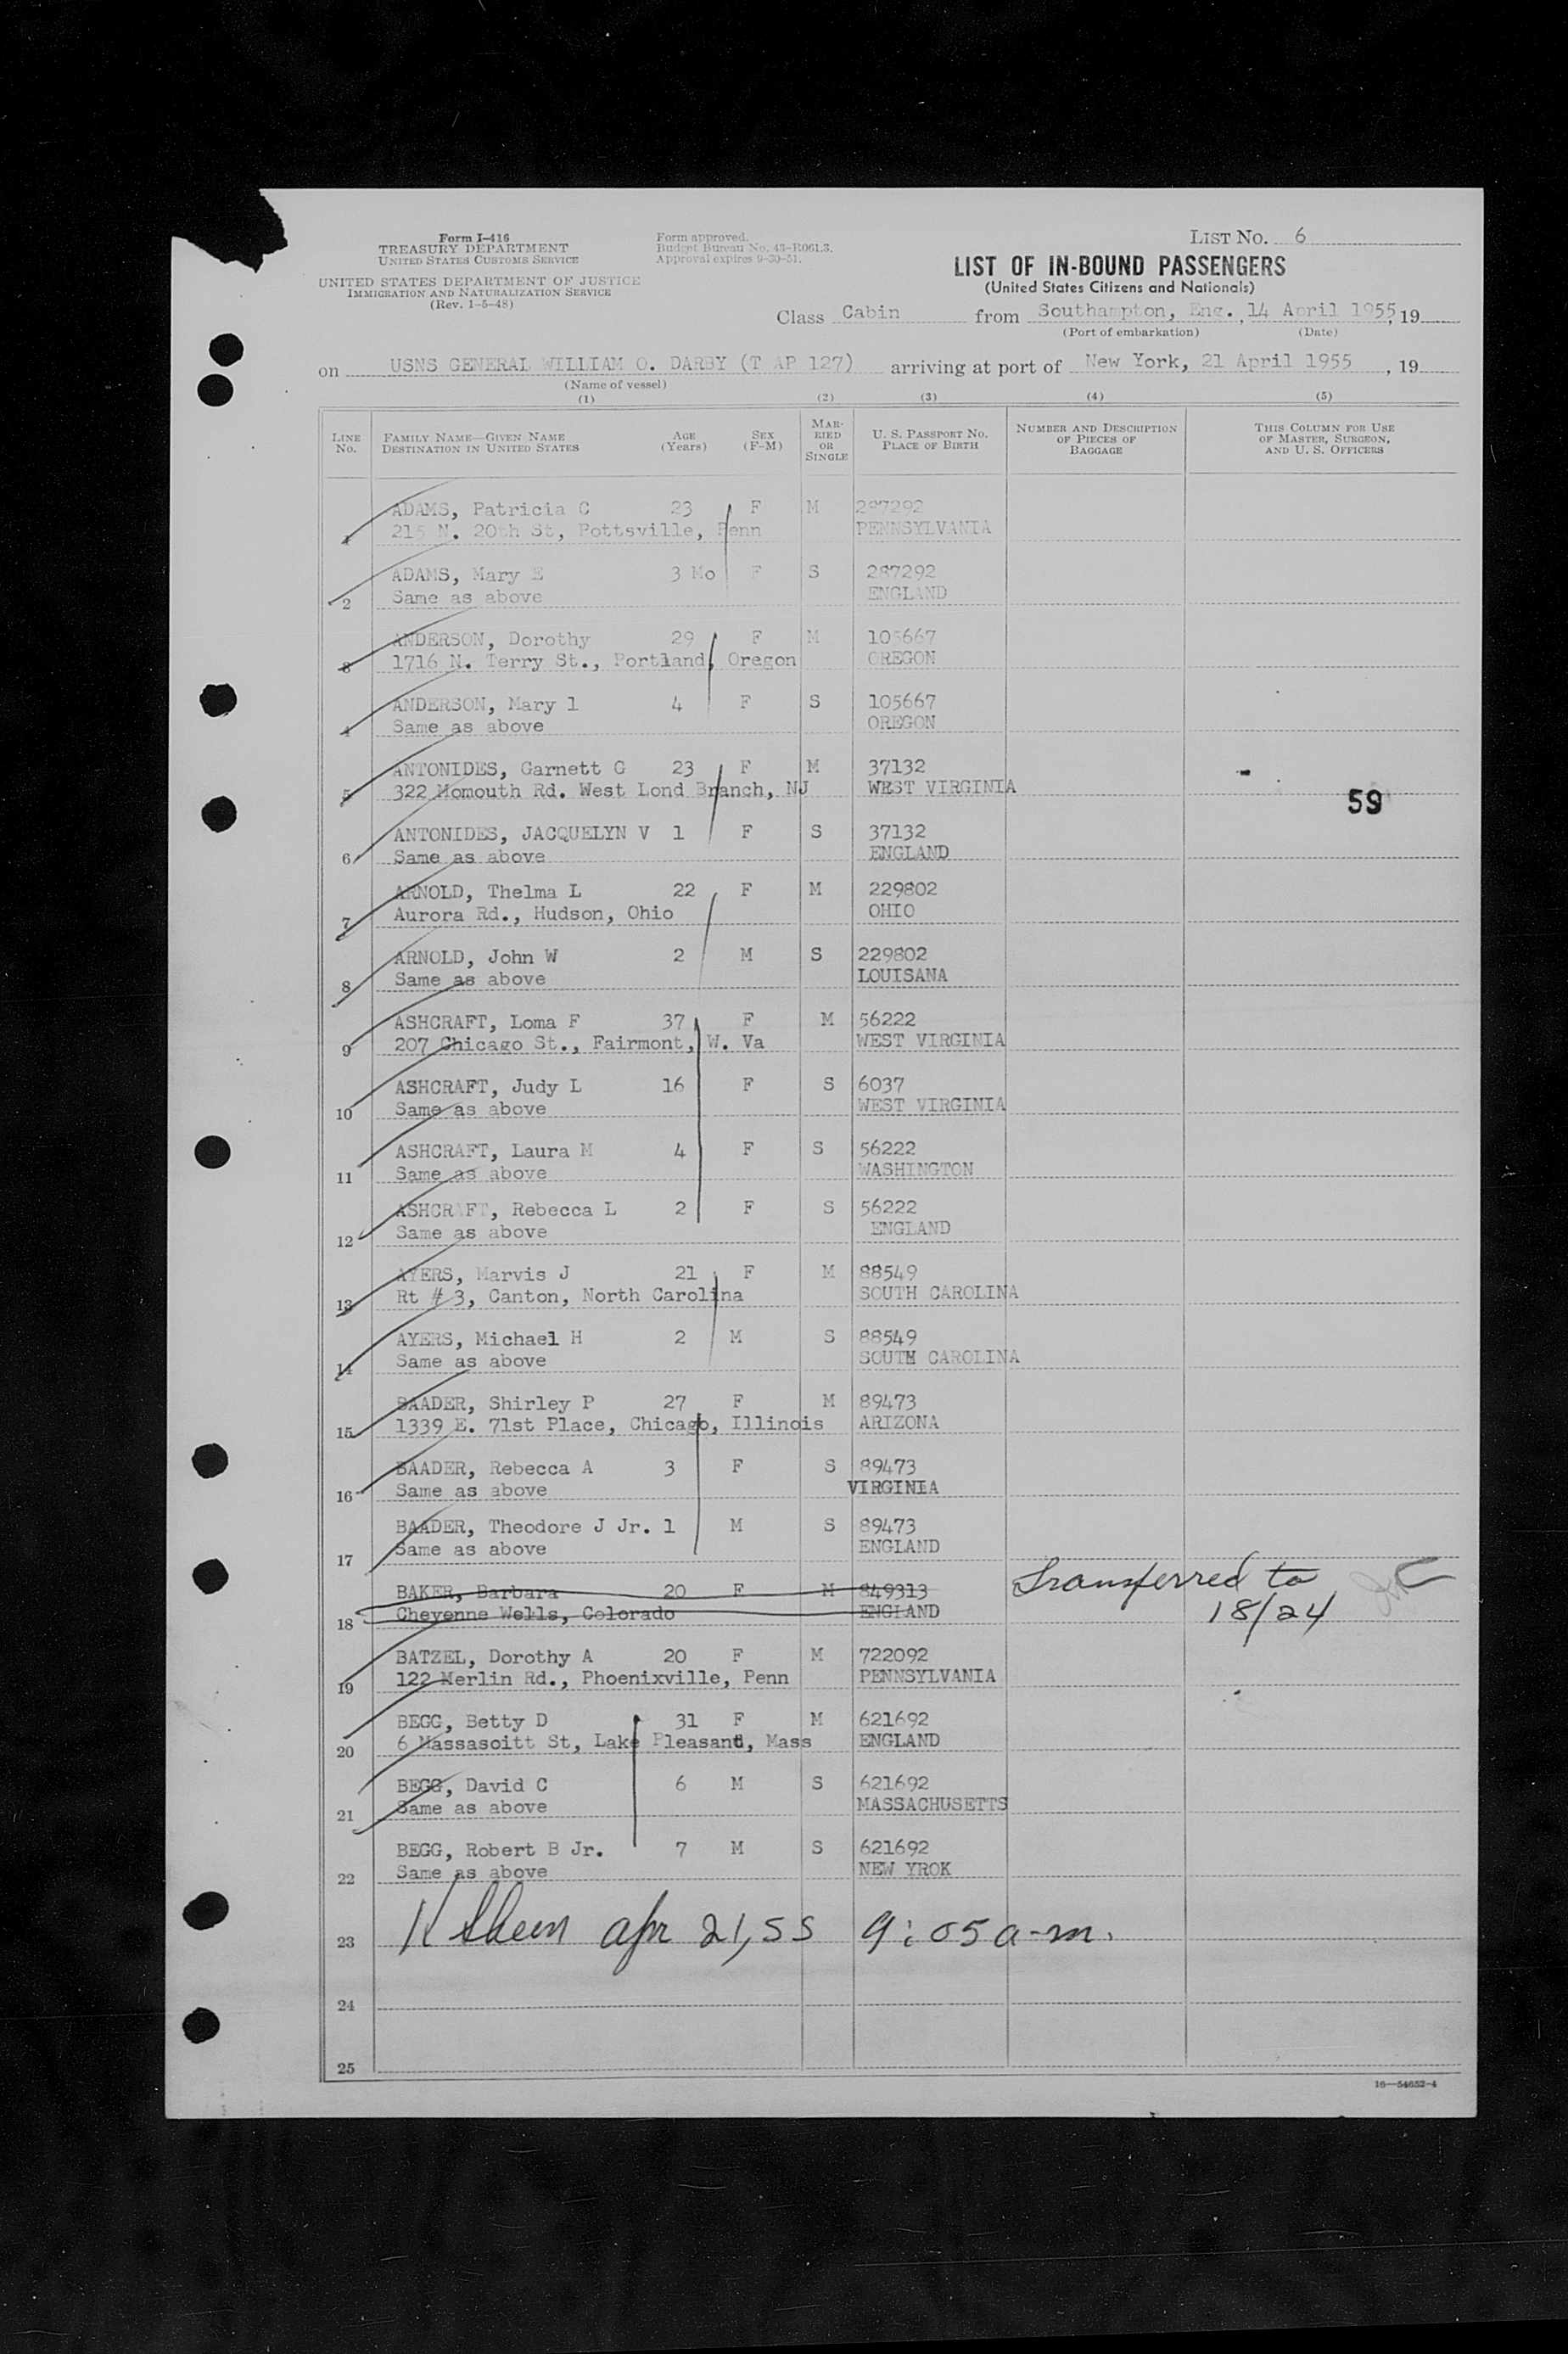 Form I-416
TREASURY DEPARTMENT
UNITED STATES CUSTOMS SERVICE
UNITED STATES DEPARTMENT OF JUSTICE
IMMIGRATION AND NATURALIZATION SERVICE
(Rev. 1-5-48)
Form approved.
Budget Bureau No. 43-R061.3.
Approval expires 9-30-51.
LIST NO. 6
LIST OF IN-BOUND PASSENGERS
(United States Citizens and Nationals)
Class Cabin from Southampton, Eng., 14 April 1955, 19
(Port of embarkation) (Date)
on USNS GENERAL WILLIAM O. DARBY (T AP 127) arriving at port of New York, 21 April 1955, 19
(Name of vessel)
(1) (2) (3) (4) (5)
LINE NO. FAMILY NAME—GIVEN NAME DESTINATION IN UNITED STATES AGE (Years) SEX (F-M) MARRIED OR SINGLE U. S. PASSPORT NO. PLACE OF BIRTH NUMBER AND DESCRIPTION OF PIECES OF BAGGAGE THIS COLUMN FOR USE OF MASTER, SURGEON, AND U. S. OFFICERS
ADAMS, Patricia C 23 F M 287292
1 215 N. 20th St, Pottsville, Penn PENNSYLVANIA
ADAMS, Mary E 3 Mo F S 287292
2 Same as above ENGLAND
ANDERSON, Dorothy 29 F M 105667
3 1716 N. Terry St., Portland, Oregon OREGON
ANDERSON, Mary l 4 F S 105667
4 Same as above OREGON
ANTONIDES, Garnett G 23 F M 37132
5 322 Momouth Rd. West Lond Branch, NJ WEST VIRGINIA
59
ANTONIDES, JACQUELYN V 1 F S 37132
6 Same as above ENGLAND
ARNOLD, Thelma L 22 F M 229802
7 Aurora Rd., Hudson, Ohio OHIO
ARNOLD, John W 2 M S 229802
8 Same as above LOUISANA
ASHCRAFT, Loma F 37 F M 56222
9 207 Chicago St., Fairmont, W. Va WEST VIRGINIA
ASHCRAFT, Judy L 16 F S 6037
10 Same as above WEST VIRGINIA
ASHCRAFT, Laura M 4 F S 56222
11 Same as above WASHINGTON
ASHCRAFT, Rebecca L 2 F S 56222
12 Same as above ENGLAND
AYERS, Marvis J 21 F M 88549
13 Rt # 3, Canton, North Carolina SOUTH CAROLINA
AYERS, Michael H 2 M S 88549
14 Same as above SOUTH CAROLINA
BAADER, Shirley P 27 F M 89473
15 1339 E. 71st Place, Chicago, Illinois ARIZONA
BAADER, Rebecca A 3 F S 89473
16 Same as above VIRGINIA
BAADER, Theodore J Jr. 1 M S 89473
17 Same as above ENGLAND
BAKER, Barbara 20 F M 849313 Transferred to
18 Cheyenne Wells, Colorado ENGLAND 18/24
BATZEL, Dorothy A 20 F M 722092
19 122 Merlin Rd., Phoenixville, Penn PENNSYLVANIA
BEGG, Betty D 31 F M 621692
20 6 Massasoitt St, Lake Pleasant, Mass ENGLAND
BEGG, David C 6 M S 621692
21 Same as above MASSACHUSETTS
BEGG, Robert B Jr. 7 M S 621692
22 Same as above NEW YROK
23 apr 21, 55 9:05 a-m.
24
25
16—54652-4